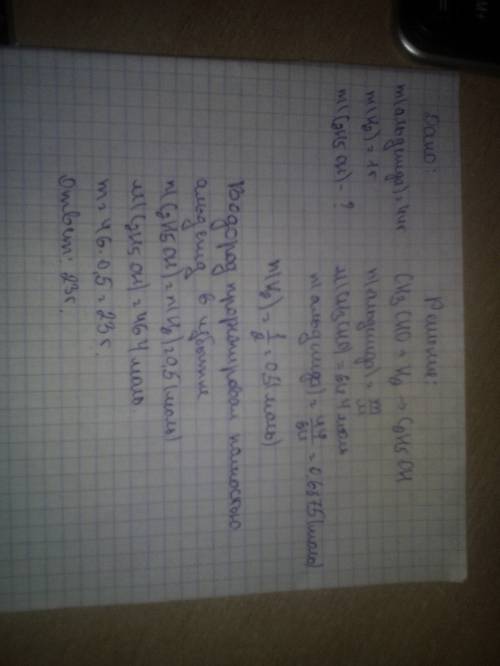 Дано:
m(альдегида)=44г
m(H2)=1г
m(C2H5OH)-?
Решение:
CH3CHO+H2→C2H5OH
n(альдегида)=m/M
M(CH3CHO)=64г/моль
n(альдегида)=44/64=0,6875(моль)
n(H2)=1/2=0,5(моль)
Водород прореагировал полностью
альдегид в избытке
n(C2H5OH)=n(H2)=0,5(моль)
M(C2H5OH)=46г/моль
m=46·0,5=23г.
Ответ: 23г.